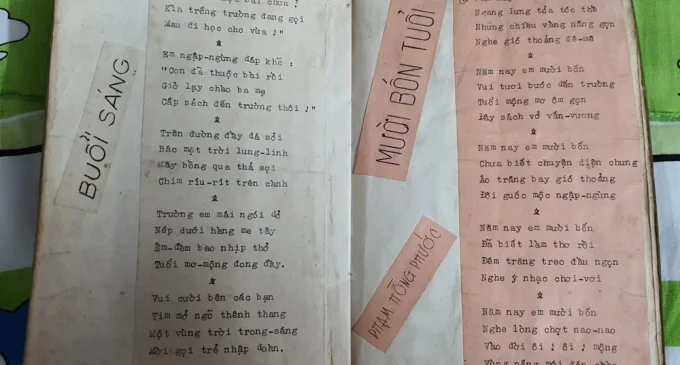 BUỔI SÁNG
Kìa trống trường đang gọi
Mau đi học cho vừa !"
Em ngập-ngừng đáp khẽ :
"Con đã thuộc bài rồi
Giờ lạy chào ba mẹ
Cắp sách đến trường thôi !"
Trên đường đầy đá sỏi
Bác mặt trời lung-linh
Mây hồng qua thả sợi
Chim ríu-rít trên cành
Trường em mái ngói đỏ
Nép dưới hàng me tây
Êm-đềm bao nhịp thở
Tuổi mơ-mộng đong đầy.
Vui cười bên các bạn
Tim mở ngõ thênh thang
Một vùng trời trong-sáng
Mời gọi trẻ nhập đoàn.
MƯỜI BỐN TUỔI
PHẠM HỒNG PHƯỚC
Ngang lưng tỏa tóc thề
Những chiều vàng nắng gọn
Nghe gió thoảng đê-mê
Năm nay em mười bốn
Vui tươi bước đến trường
Tuổi mộng mơ ôm gọn
Đầy sách vở vấn-vương
Năm nay em mười bốn
Chưa biết chuyện diện chung
Áo trắng bay gió thoảng
Đôi guốc mộc ngập-ngừng
Năm nay em mười bốn
Đã biết làm thơ rồi
Đêm trăng treo đầu ngọn
Nghe ý nhạc chơi-vơi
Năm nay em mười bốn
Nghe lòng chợt nao-nao
Vào đời ôi ! ôi ! mộng
Vùng nắng mới